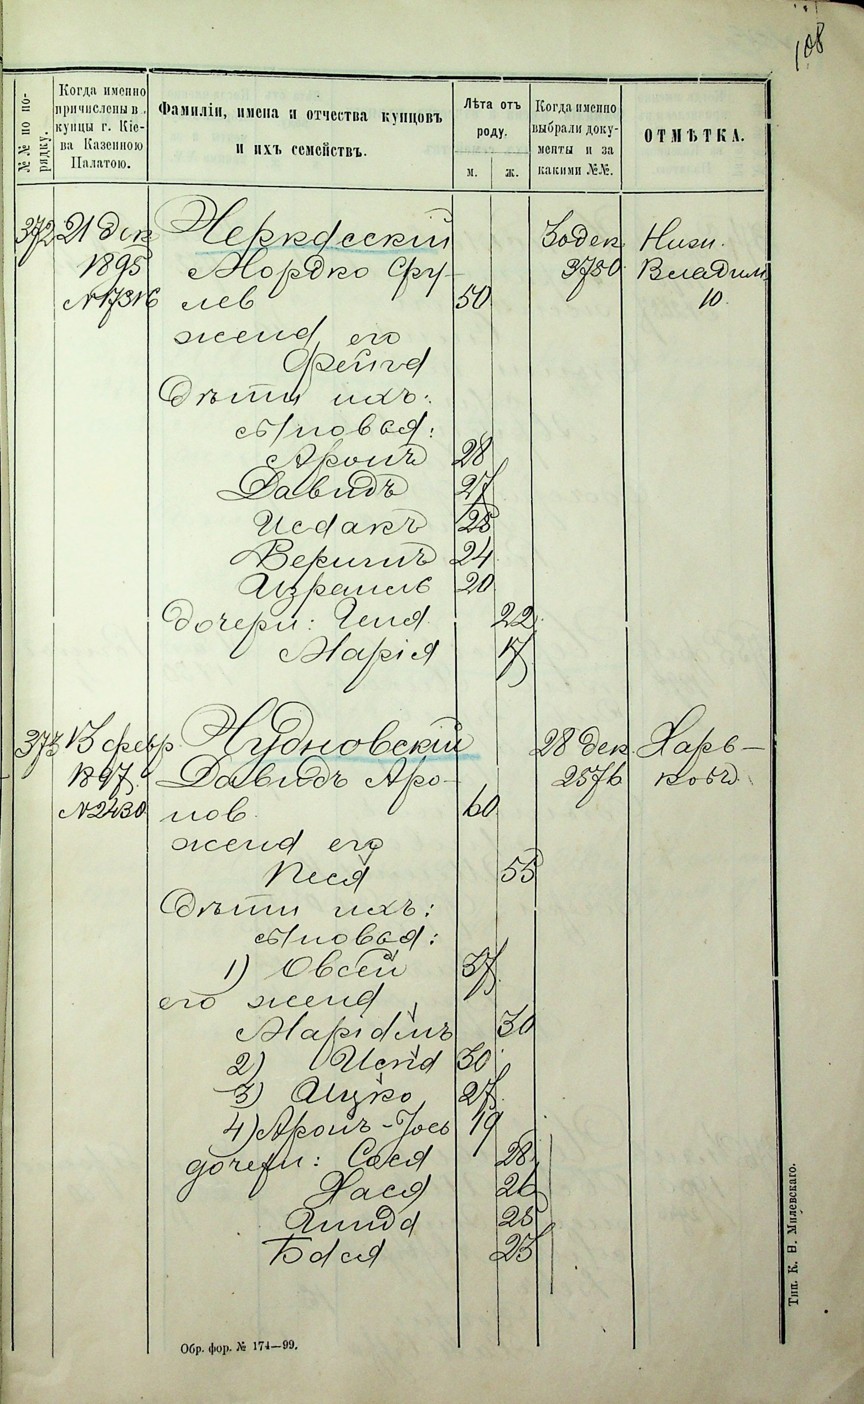 108
№№ по по-
рядку.
Когда именно
причислены в
купцы г. Кіе-
ва Казенною
Палатою.
Фамиліи, имена и отчества купцовъ
и ихъ семействъ.
Лѣта отъ
роду.
м. ж.
Когда именно
выбрали доку-
менты и за
какими №№.
ОТМѢТКА.
372 21 дек Черкасскій 30 дек Нижн.
1895 Мордко Сру- 3780 Владим
№17316 лев 50 10
жена его
Фейга
Дѣти ихъ:
сыновья:
Аронъ 28
Давидъ 27
Исаакъ 25
Веришъ 24
Израиль 20
дочери: Гена 22
Марія 17
373 13 февр Чудновскій 28 дек Харь-
1897 Давидъ Аро- 2576 ковъ
№2430 нов 60
жена его
Песя 55
Дѣти ихъ:
сыновья:
1) Овсей 37
его жена
Маріамъ 30
2) 30
3) Ицко 27
4) Аронъ-Іось 19
дочери: Сося 28
Хася 26
25
Бася 23
Обр. фор. № 174—99.
Тип. К. Н. Милевскаго.